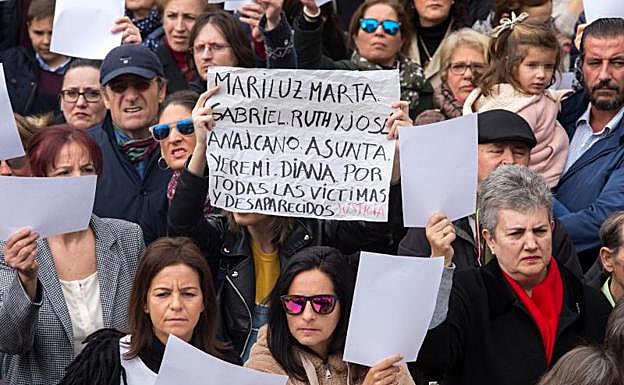 MARILUZ. MARTA.
GABRIEL. RUTH Y JOSÉ
ANA J. CANO. ASUNTA.
YEREMI. DIANA. POR
TODAS LAS VÍCTIMAS
Y DESAPARECIDOS JUSTICIA